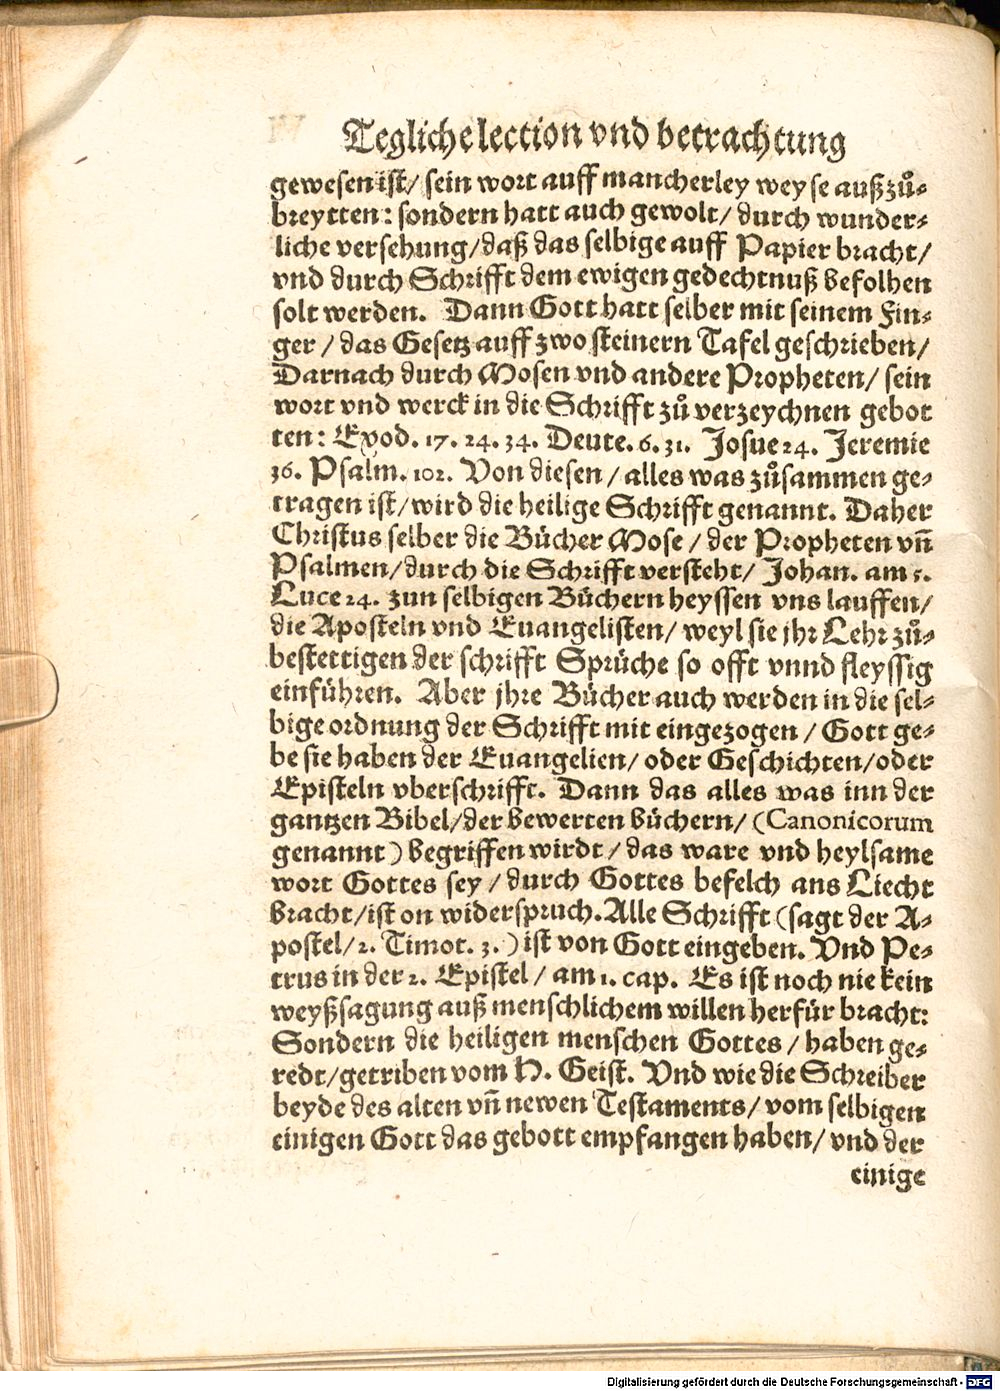 Tegliche lection vnd betrachtung
gewesen ist/ sein wort auff mancherley weyse außzů-
breytten: sondern hatt auch gewolt/ durch wunder-
liche versehung/ daß das selbige auff Papier bracht/
vnd durch Schrifft dem ewigen gedechtnuß befolhen
solt werden. Dann Gott hatt selber mit seinem Fin-
ger / das Gesetz auff zwo steinern Tafel geschrieben/
Darnach durch Mosen vnd andere Propheten/ sein
wort vnd werck in die Schrifft zů verzeychnen gebot
ten: Exod. 17. 24. 34. Deute. 6. 31. Josue 24. Jeremie
36. Psalm. 102. Von diesen / alles was zůsammen ge-
tragen ist/ wird die heilige Schrifft genannt. Daher
Christus selber die Bücher Mose / der Propheten vñ
Psalmen/ durch die Schrifft versteht/ Johan. am 5.
Luce 24. zun selbigen Büchern heyssen vns lauffen/
die Aposteln vnd Euangelisten/ weyl sie jhr Lehr zů-
bestettigen der schrifft Sprüche so offt vnnd fleyssig
einführen. Aber jhre Bücher auch werden in die sel-
bige ordnung der Schrifft mit eingezogen / Gott ge-
be sie haben der Euangelien/ oder Geschichten/ oder
Episteln vberschrifft. Dann das alles was inn der
gantzen Bibel/ der bewerten büchern/ (Canonicorum
genannt) begriffen wirdt / das ware vnd heylsame
wort Gottes sey / durch Gottes befelch ans Liecht
bracht/ ist on widerspruch. Alle Schrifft (sagt der A-
postel/ 2. Timot. 3.) ist von Gott eingeben. Vnd Pe-
trus in der 2. Epistel / am 1. cap. Es ist noch nie kein
weyßsagung auß menschlichem willen herfür bracht:
Sondern die heiligen menschen Gottes / haben ge-
redt/ getriben vom H. Geist. Vnd wie die Schreiber
beyde des alten vñ newen Testaments/ vom selbigen
einigen Gott das gebott empfangen haben/ vnd der
einige
Digitalisierung gefördert durch die Deutsche Forschungsgemeinschaft - DFG